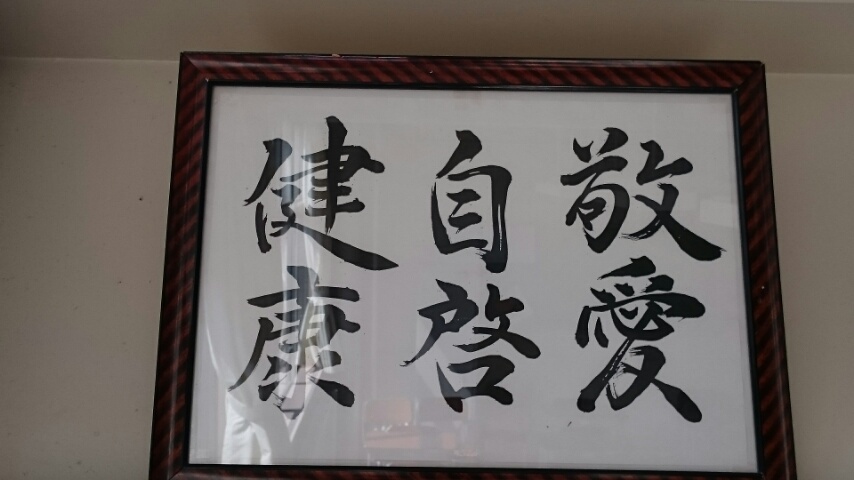 敬愛
自啓
健康